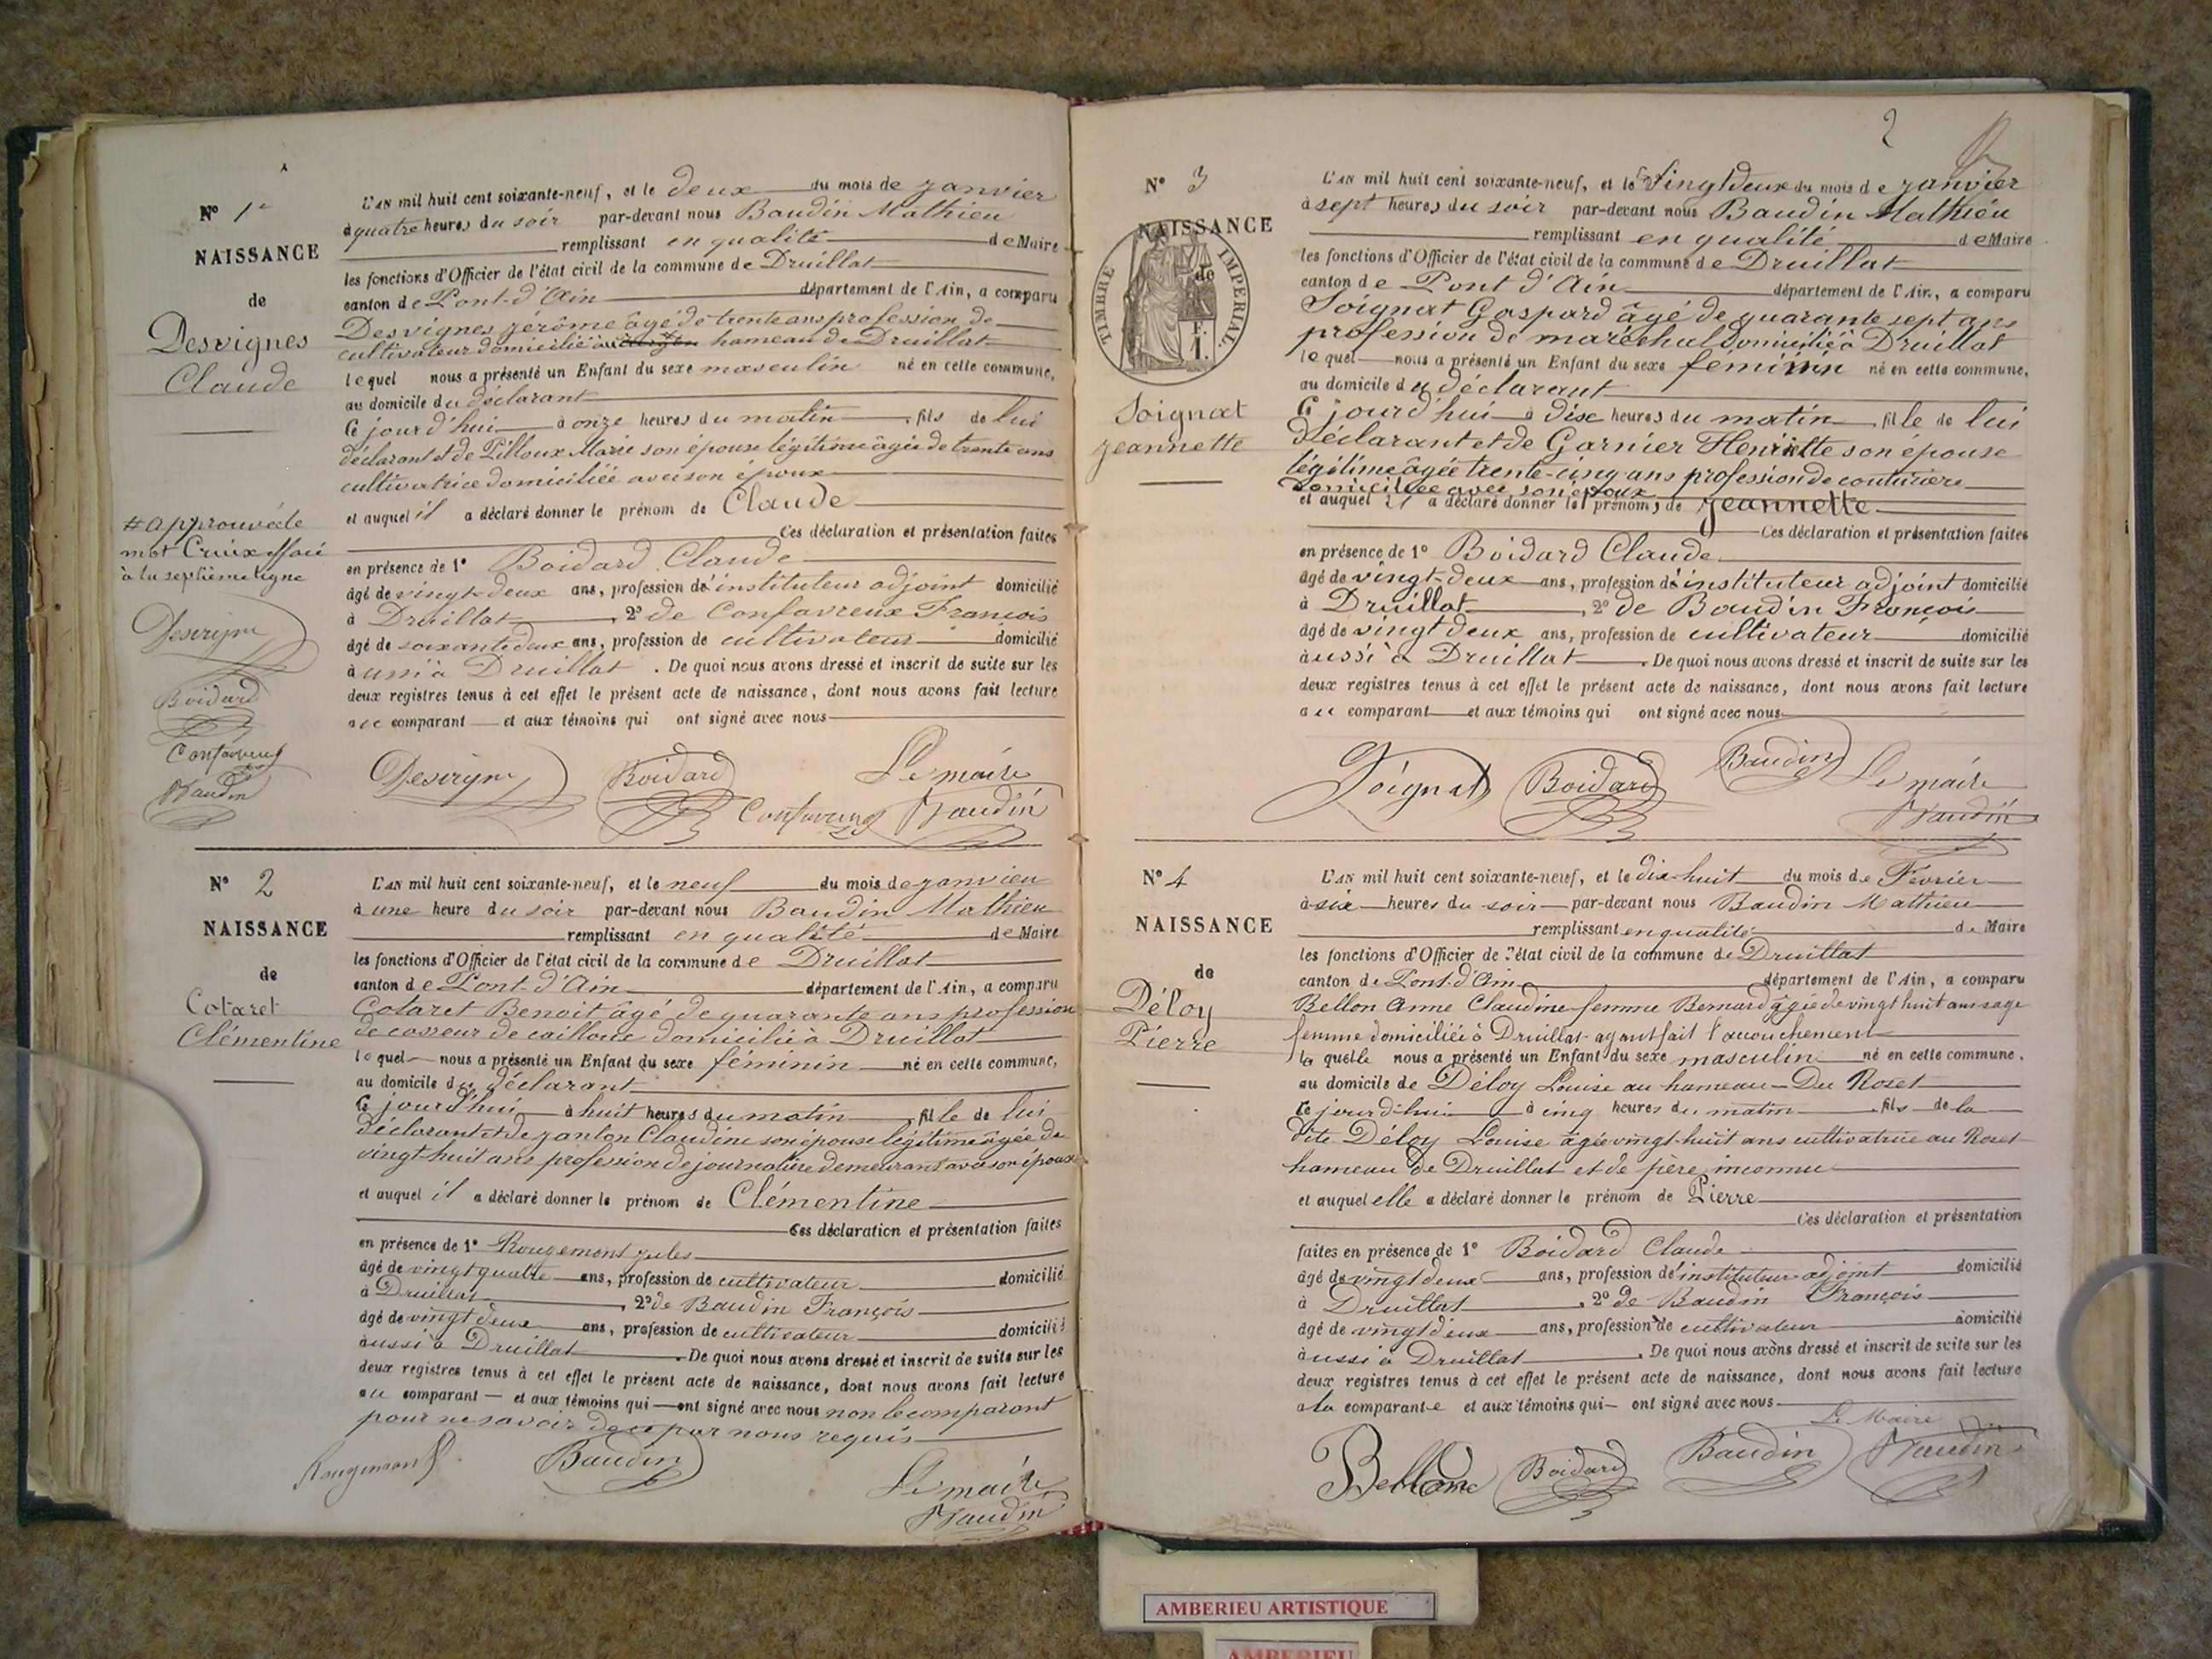 N° 1er
NAISSANCE
de
Desvignes
Claude
L'AN mil huit cent soixante-neuf, et le deux du mois de janvier
à quatre heures du soir par-devant nous Baudin Mathieu
remplissant en qualité de Maire
les fonctions d'Officier de l'état civil de la commune de Druillat
canton de Pont-d'Ain département de l'Ain, a comparu
Desvignes jérôme âgé de trente ans profession de
cultivateur domicilié à hameau de Druillat
lequel nous a présenté un Enfant du sexe masculin né en cette commune,
au domicile du déclarant
Ce jourd'hui à onze heures du matin fils de lui
déclarant et de Pilloux Marie son épouse légitime âgée de trente ans
cultivatrice domiciliée avec son époux
et auquel il a déclaré donner le prénom de Claude
Ces déclaration et présentation faites
en présence de 1° Boidard Claude
âgé de vingt-deux ans, profession d'instituteur adjoint domicilié
à Druillat, 2° de Confavreux François
âgé de soixante deux ans, profession de cultivateur domicilié
aussi à Druillat. De quoi nous avons dressé et inscrit de suite sur les
deux registres tenus à cet effet le présent acte de naissance, dont nous avons fait lecture
au comparant et aux témoins qui ont signé avec nous
# approuvé le
mot Croix effacé
à la septième ligne
Desvigne
Boidard
Confavreux
Baudin
Desvigne Boidard Le maire
Confavreux Baudin
N° 2
NAISSANCE
de
Cotaret
Clémentine
L'AN mil huit cent soixante-neuf, et le neuf du mois de janvier
à une heure du soir par-devant nous Baudin Mathieu
remplissant en qualité de Maire
les fonctions d'Officier de l'état civil de la commune de Druillat
canton de Pont-d'Ain département de l'Ain, a comparu
Cotaret Benoit âgé de quarante ans profession
de casseur de cailloux domicilié à Druillat
lequel nous a présenté un Enfant du sexe féminin né en cette commune,
au domicile du déclarant
Ce jourd'hui à huit heures du matin fille de lui
déclarant et de janton Claudine son épouse légitime âgée de
vingt-huit ans profession de journalière demeurant avec son époux
et auquel il a déclaré donner le prénom de Clémentine
Ces déclaration et présentation faites
en présence de 1° Rougemont jules
âgé de vingt quatre ans, profession de cultivateur domicilié
à Druillat, 2° de Baudin François
âgé de vingt deux ans, profession de cultivateur domicilié
aussi à Druillat. De quoi nous avons dressé et inscrit de suite sur les
deux registres tenus à cet effet le présent acte de naissance, dont nous avons fait lecture
au comparant et aux témoins qui ont signé avec nous non le comparant
pour ne savoir de ce par nous requis
Rougemont Baudin Le maire
Baudin
2
N° 3
NAISSANCE
de
TIMBRE IMPERIAL
1 F.
Soignat
jeannette
L'AN mil huit cent soixante-neuf, et le Vingt deux du mois de janvier
à sept heures du soir par-devant nous Baudin Mathieu
remplissant en qualité de Maire
les fonctions d'Officier de l'état civil de la commune de Druillat
canton de Pont d'Ain département de l'Ain, a comparu
Soignat Gaspard âgé de quarante sept ans
profession de maréchal domicilié à Druillat
lequel nous a présenté un Enfant du sexe féminin né en cette commune,
au domicile du déclarant
Ce jourd'hui à dix heures du matin fille de lui
déclarant et de Garnier Henriette son épouse
légitime âgée trente-cinq ans profession de couturière
domiciliée avec son époux
et auquel il a déclaré donner les prénoms de jeannette
Ces déclaration et présentation faites
en présence de 1° Boidard Claude
âgé de vingt-deux ans, profession d'instituteur adjoint domicilié
à Druillat, 2° de Baudin François
âgé de vingt deux ans, profession de cultivateur domicilié
aussi à Druillat. De quoi nous avons dressé et inscrit de suite sur les
deux registres tenus à cet effet le présent acte de naissance, dont nous avons fait lecture
au comparant et aux témoins qui ont signé avec nous
Soignat Boidard Baudin Le maire
Baudin
N° 4
NAISSANCE
de
Déloy
Pierre
L'AN mil huit cent soixante-neuf, et le dix-huit du mois de Février
à six heures du soir par-devant nous Baudin Mathieu
remplissant en qualité de Maire
les fonctions d'Officier de l'état civil de la commune de Druillat
canton de Pont-d'Ain département de l'Ain, a comparu
Bellon Anne Claudine femme Bernard âgée de vingt huit ans sage
femme domiciliée à Druillat ayant fait l'accouchement
laquelle nous a présenté un Enfant du sexe masculin né en cette commune,
au domicile de Déloy Louise au hameau Du Roset
ce jourd'hui à cinq heures du matin fils de la
dite Déloy Louise âgée vingt-huit ans cultivatrice au Roset
hameau de Druillat et de père inconnu
et auquel elle a déclaré donner le prénom de Pierre
Ces déclaration et présentation
faites en présence de 1° Boidard Claude
âgé de vingt deux ans, profession d'instituteur adjoint domicilié
à Druillat, 2° de Baudin François
âgé de vingt deux ans, profession de cultivateur domicilié
aussi à Druillat. De quoi nous avons dressé et inscrit de suite sur les
deux registres tenus à cet effet le présent acte de naissance, dont nous avons fait lecture
à la comparante et aux témoins qui ont signé avec nous
Le Maire
Bellon Boidard Baudin Baudin
AMBERIEU ARTISTIQUE
AMBERIEU